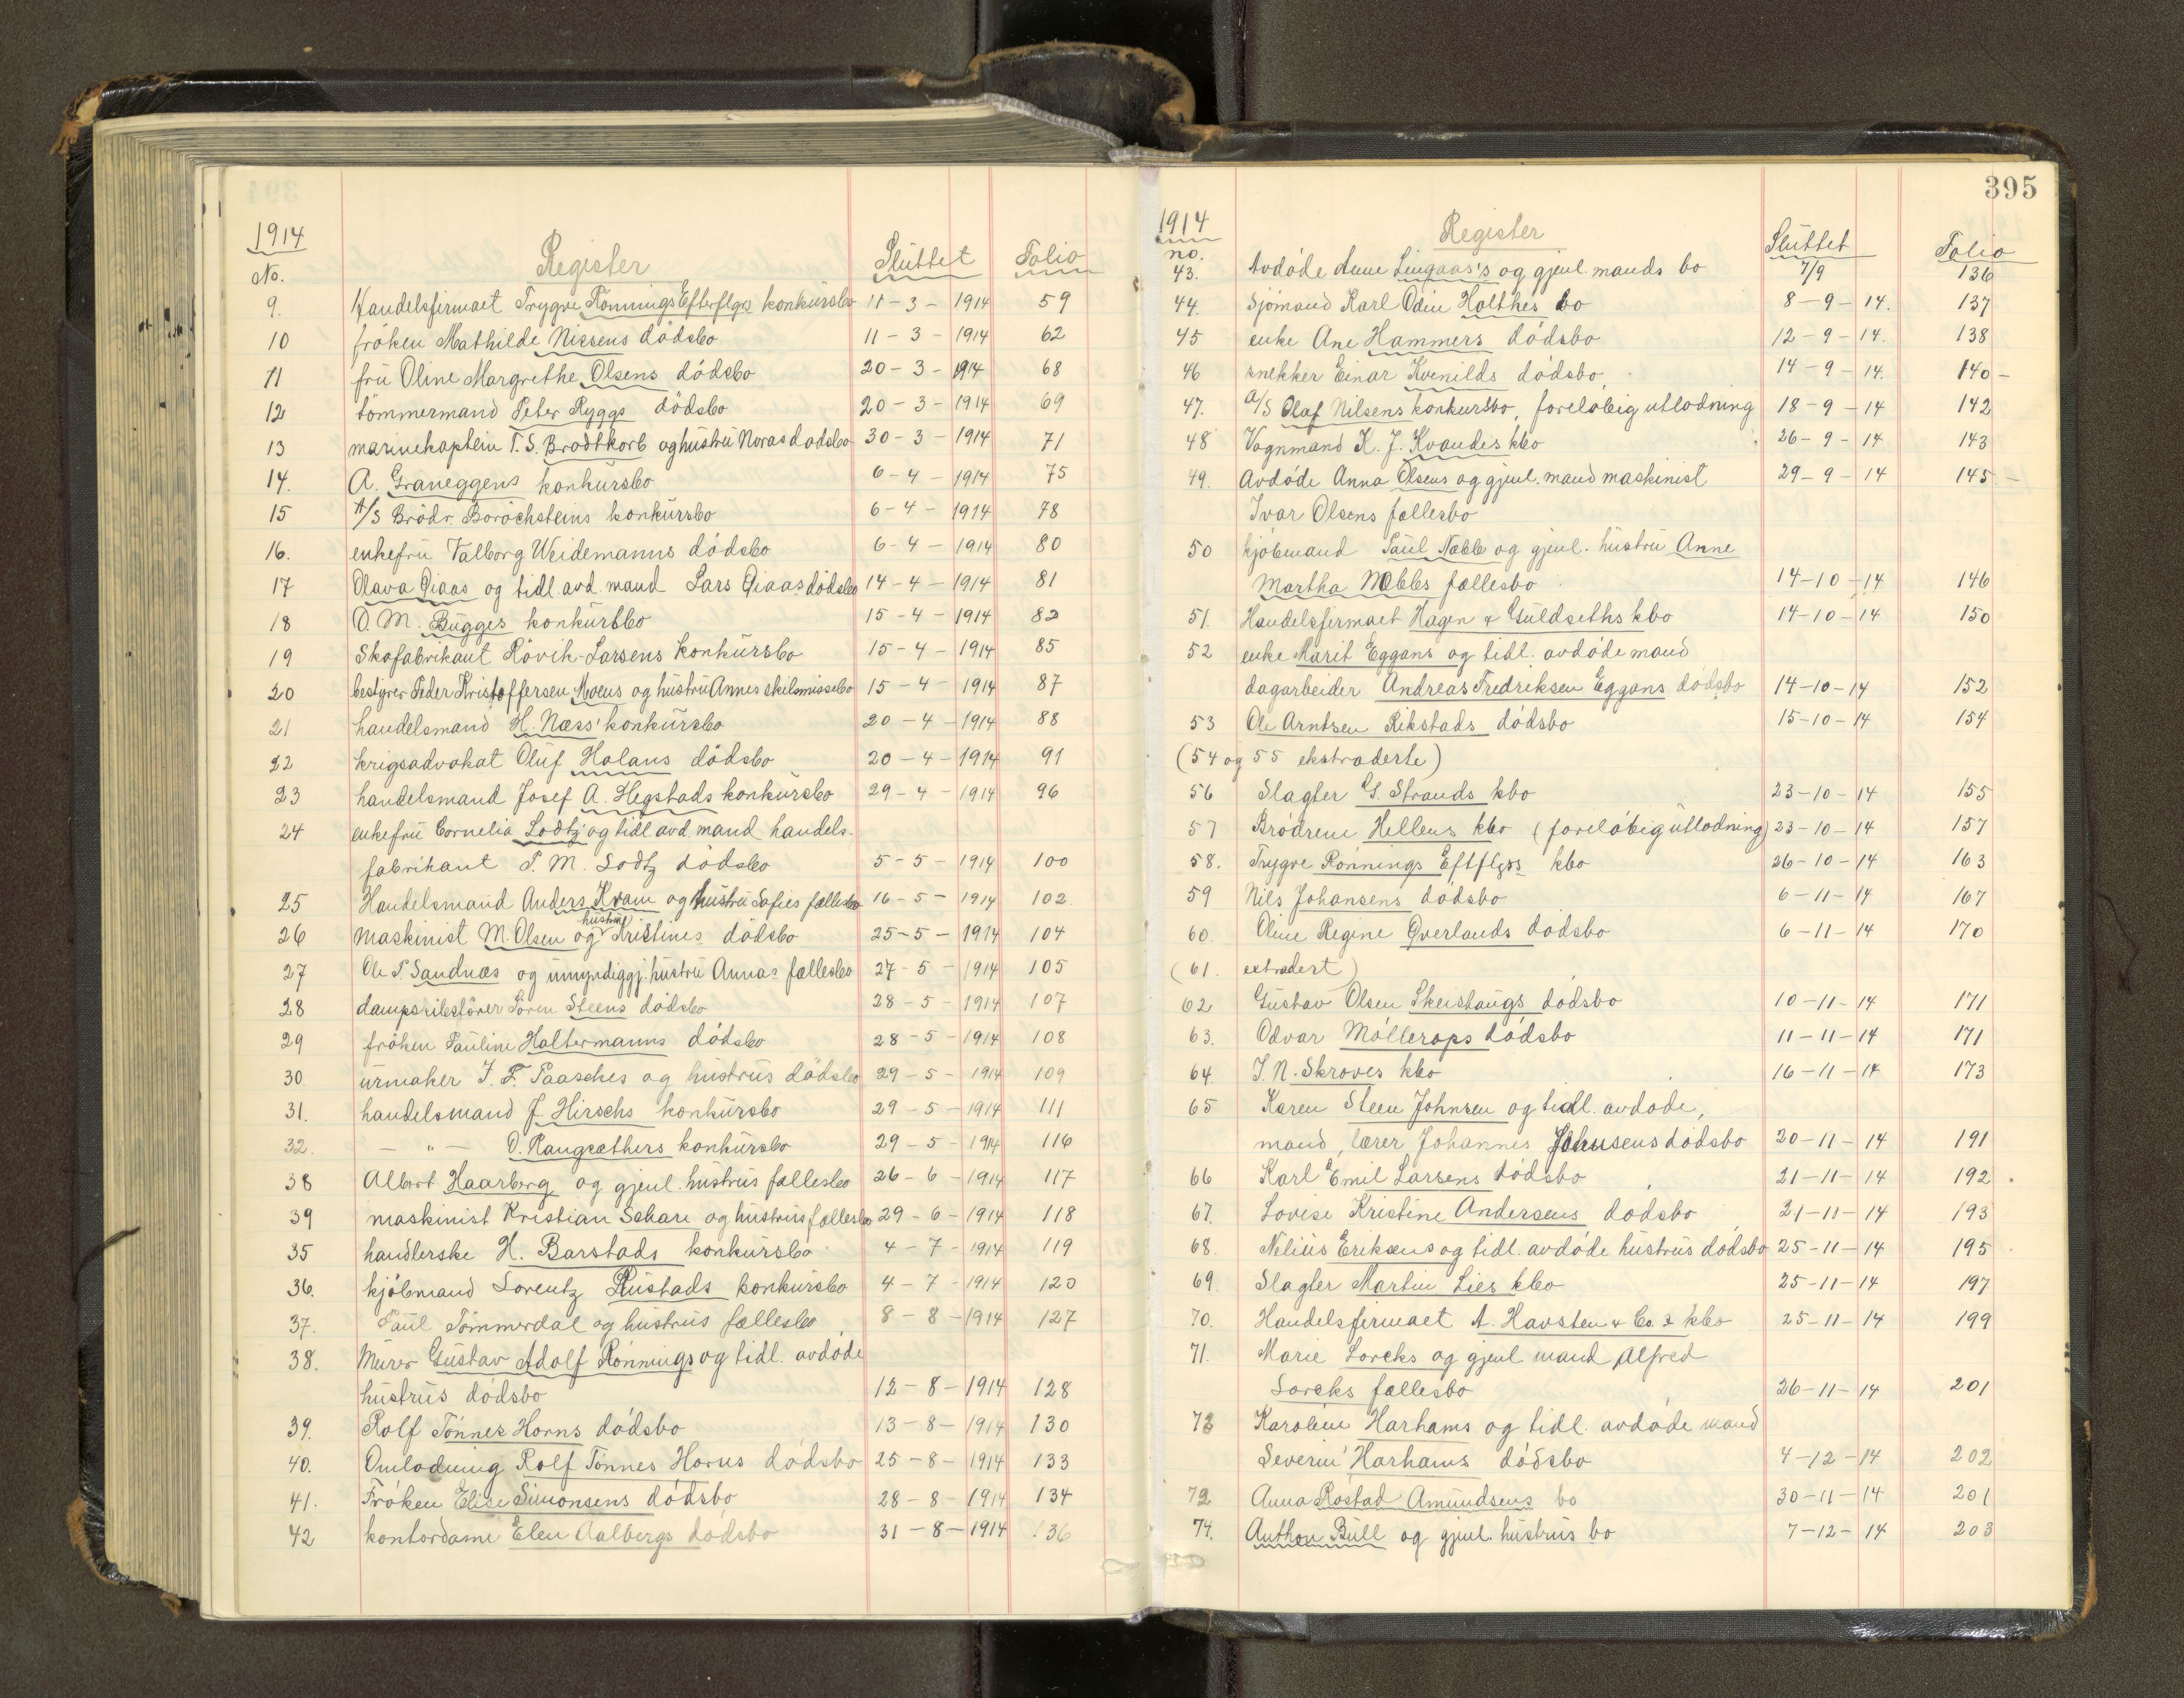 1914
No. Register Sluttet Folio
9. Handelsfirmaet Trygve Rönnings Efterflgrs konkursbo 11-3-1914 59
10 fröken Mathilde Nissens dödsbo 11-3-1914 62
11 fru Oline Margrethe Olsens dödsbo 20-3-1914 68
12 tömmermand Peter Ryggs dödsbo 20-3-1914 69
13 marinekaptein T. S. Brodtkorb og hustru Noras dödsbo 30-3-1914 71
14. A. Graneggens konkursbo 6-4-1914 75
15 A/S Brödr. Borochsteins konkursbo 6-4-1914 78
16. enkefru Valborg Weidemanns dödsbo 6-4-1914 80
17 Olava Öiaas og tidl. avd. mand Lars Öiaas dödsbo 14-4-1914 81
18 O. M. Bugges konkursbo 15-4-1914 82
19 Skofabrikant Rövik-Larsens konkursbo 15-4-1914 85
20 bestyrer Peder Kristoffersen Moens og hustru Annes skilsmissebo 15-4-1914 87
21 handelsmand H. Næss' konkursbo 20-4-1914 88
22 krigsadvokat Oluf Holans dödsbo 20-4-1914 91
23 handelsmand Josef A. Hegstads konkursbo 29-4-1914 96
24 enkefru Cornelia Lodtz og tidl. avd. mand handels-
fabrikant P. M. Lodtz dödsbo 5-5-1914 100
25 Handelsmand Anders Kvam og hustru Sofies fællesbo 16-5-1914 102.
26 maskinist M. Olsen og hustru Kristines dödsbo 25-5-1914 104
27 Ole P. Sandnæs og umyndiggj. hustru Annas fællesbo 27-5-1914 105
28 dampskibsförer Sören Steens dödsbo 28-5-1914 107
29 fröken Pauline Haltermanns dödsbo 28-5-1914 108
30. urmaker J. F. Paasches og hustrus dödsbo 29-5-1914 109
31. handelsmand J. Hirschs konkursbo 29-5-1914 111
32. — " — O. Haugsæthers konkursbo 29-5-1914 116
38 Albert Haarberg og gjenl. hustrus fællesbo 26-6-1914 117
39 maskinist Kristian Schare og hustrus fællesbo 29-6-1914 118
35 handlerske H. Barstads konkursbo 4-7-1914 119
36. kjöbmand Lorentz Rustads konkursbo 4-7-1914 120
37. Paul Tömmerdal og hustrus fællesbo 8-8-1914 127
38. Murer Gustav Adolf Rönnings og tidl. avdöde
hustrus dödsbo 12-8-1914 128
39. Rolf Tönnes Horns dödsbo 13-8-1914 130
40. Omlodning Rolf Tönnes Horns dödsbo 25-8-1914 133
41. Fröken Elise Simonsens dödsbo 28-8-1914 134
42 kontordame Elen Aalbergs dödsbo 31-8-1914 136
395
1914
no. Register Sluttet Folio
43. Avdöde Anne Lingaas's og gjenl. mands bo 7/9 136
44. Sjömand Karl Odin Holthes bo 8-9-14. 137
45 enke Ane Hammers dödsbo 12-9-14. 138
46 snekker Einar Kvenilds dödsbo, 14-9-14. 140-
47. A/S Olaf Nilsens konkursbo, foreløbig utlodning 18-9-14 142
48 Vognmand K. J. Kvandes kbo 26-9-14 143
49. Avdöde Anna Olsens og gjenl. mand maskinist 29-9-14 145-
Ivar Olsens fællesbo
50 kjöbmand Paul Næbb og gjenl. hustru Anne
Martha Næbbs fællesbo 14-10-14 146
51. Handelsfirmaet Hagen & Guldseths kbo 14-10-14 150
52 enke Marit Eggans og tidl. avdöde mand
dagarbeider Andreas Fredriksen Eggans dödsbo 14-10-14 152
53 Ole Arntsen Rikstads dödsbo 15-10-14 154
(54 og 55 ekstraderte)
56 Slagter G. Strands kbo 23-10-14 155
57 Brödrene Hellens kbo (foreløbig utlodning) 23-10-14 157
58. Trygve Rönnings Eftflgrs kbo 26-10-14 163
59 Nils Johansens dödsbo 6-11-14 167
60. Oline Regine Överlands dödsbo 6-11-14 170
(61. extradert)
62 Gustav Olsen Skeistaugs dödsbo 10-11-14 171
63. Odvar Möllerops dödsbo 11-11-14 171
64. J. N. Skroves kbo 16-11-14 173
65 Karen Steen Johnsen og tidl. avdöde,
mand, lærer Johannes Johnsens dödsbo 20-11-14 191
66 Karl Emil Larsens dödsbo 21-11-14 192.
67. Lovise Kristine Andersens dödsbo 21-11-14 193
68. Nelius Eriksens og tidl. avdöde hustrus dödsbo 25-11-14 195
69. Slagter Martin Lies kbo 25-11-14 197
70. Handelsfirmaet A. Havsten & Co.s kbo 25-11-14 199
71. Marie Lorcks og gjenl. mand Alfred
Lorcks fællesbo 26-11-14 201
73 Karoline Harhams og tidl. avdöde mand
Severin Harhams dödsbo 4-12-14 202
72 Anna Rostad Amundsens bo 30-11-14 201
74. Anthon Bull og gjenl. hustrus bo 7-12-14 203